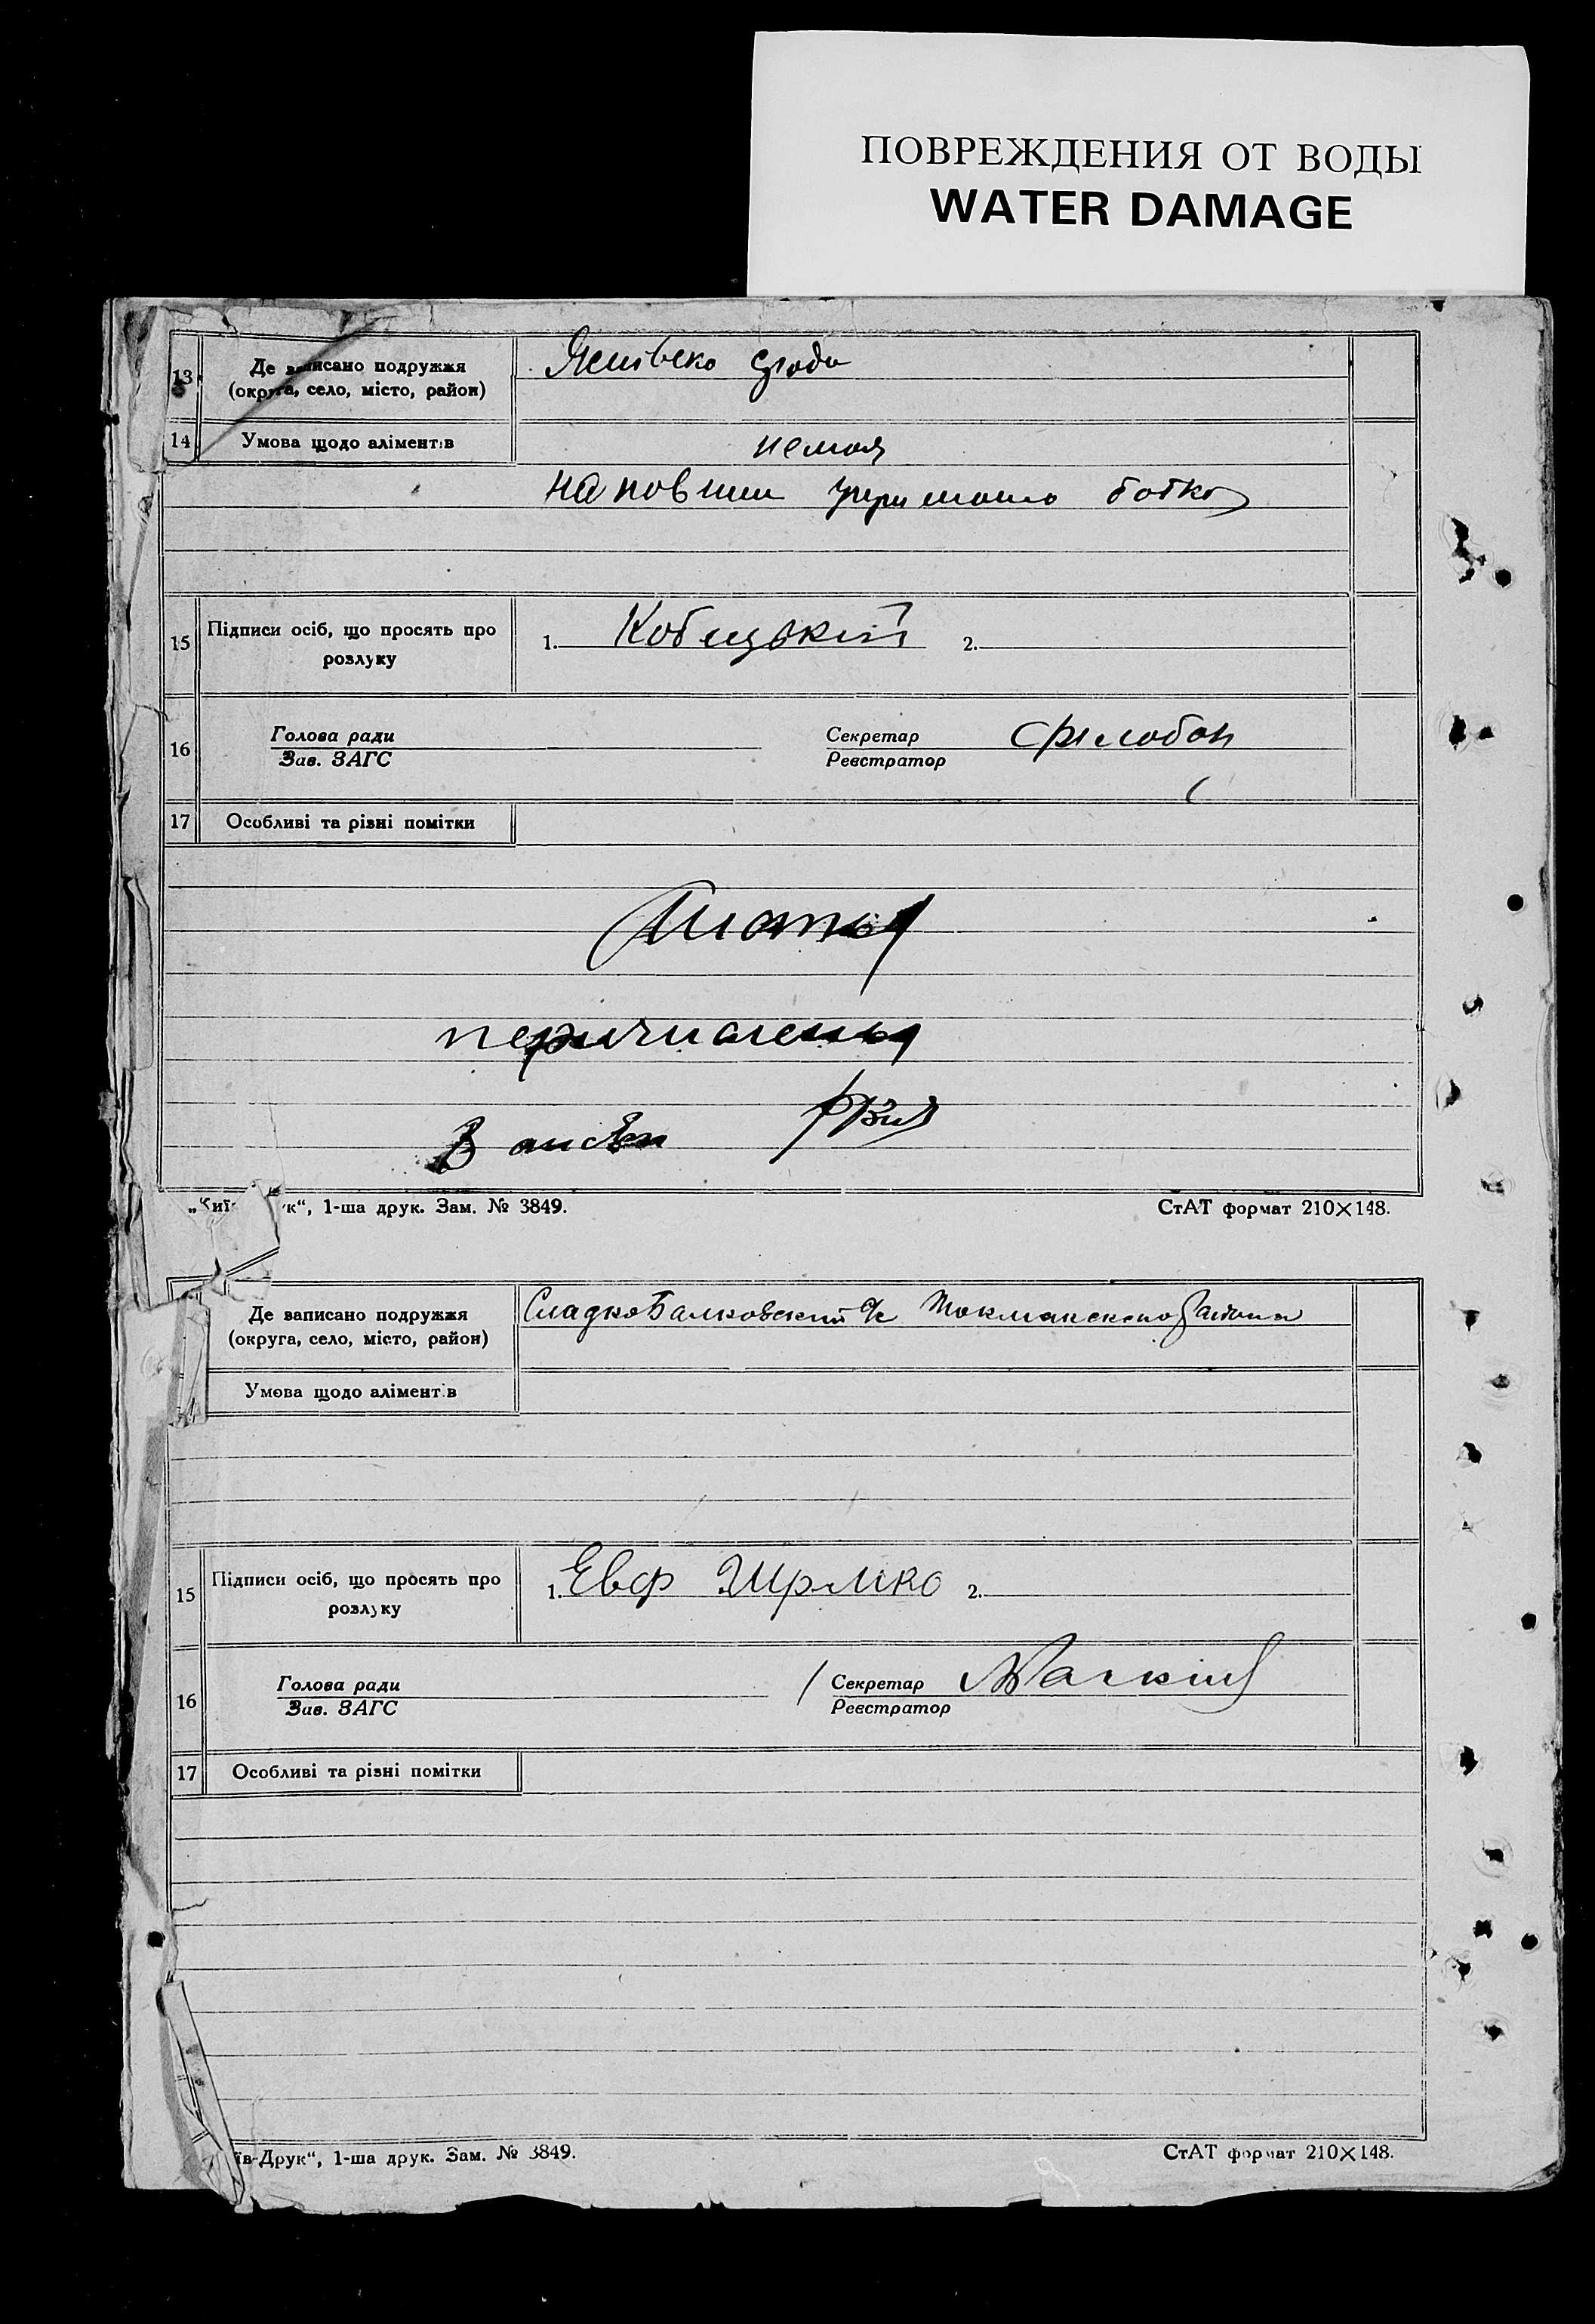 ПОВРЕЖДЕНИЯ ОТ ВОДЫ
WATER DAMAGE
13 Де записано подружжя
(округа, село, місто, район)
14 Умова щодо аліментів
немая
на повним утримано батка
15 Підписи осіб, що просять про розлуку 1. Кобицький 2.
16 Голова ради
Зав. ЗАГС
Секретар
Реєстратор
17 Особливі та різні помітки
„Киї ук“, 1-ша друк. Зам. № 3849. СтАТ формат 210×148.
Де записано подружжя
(округа, село, місто, район)
СладкоБалковский с/с Токмакского Района
Умова щодо аліментів
15 Підписи осіб, що просять про розлуку 1. Евф 2.
16 Голова ради
Зав. ЗАГС
Секретар
Реєстратор
17 Особливі та різні помітки
їв-Друк“, 1-ша друк. Зам. № 3849. СтАТ формат 210×148.